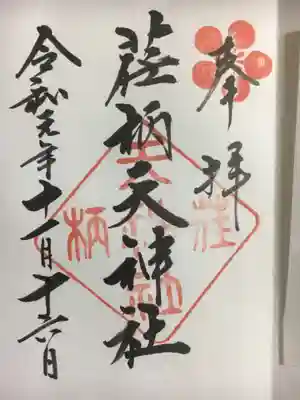 奉拝
荏柄天神社
令和元年十一月十六日
荏柄
天神社